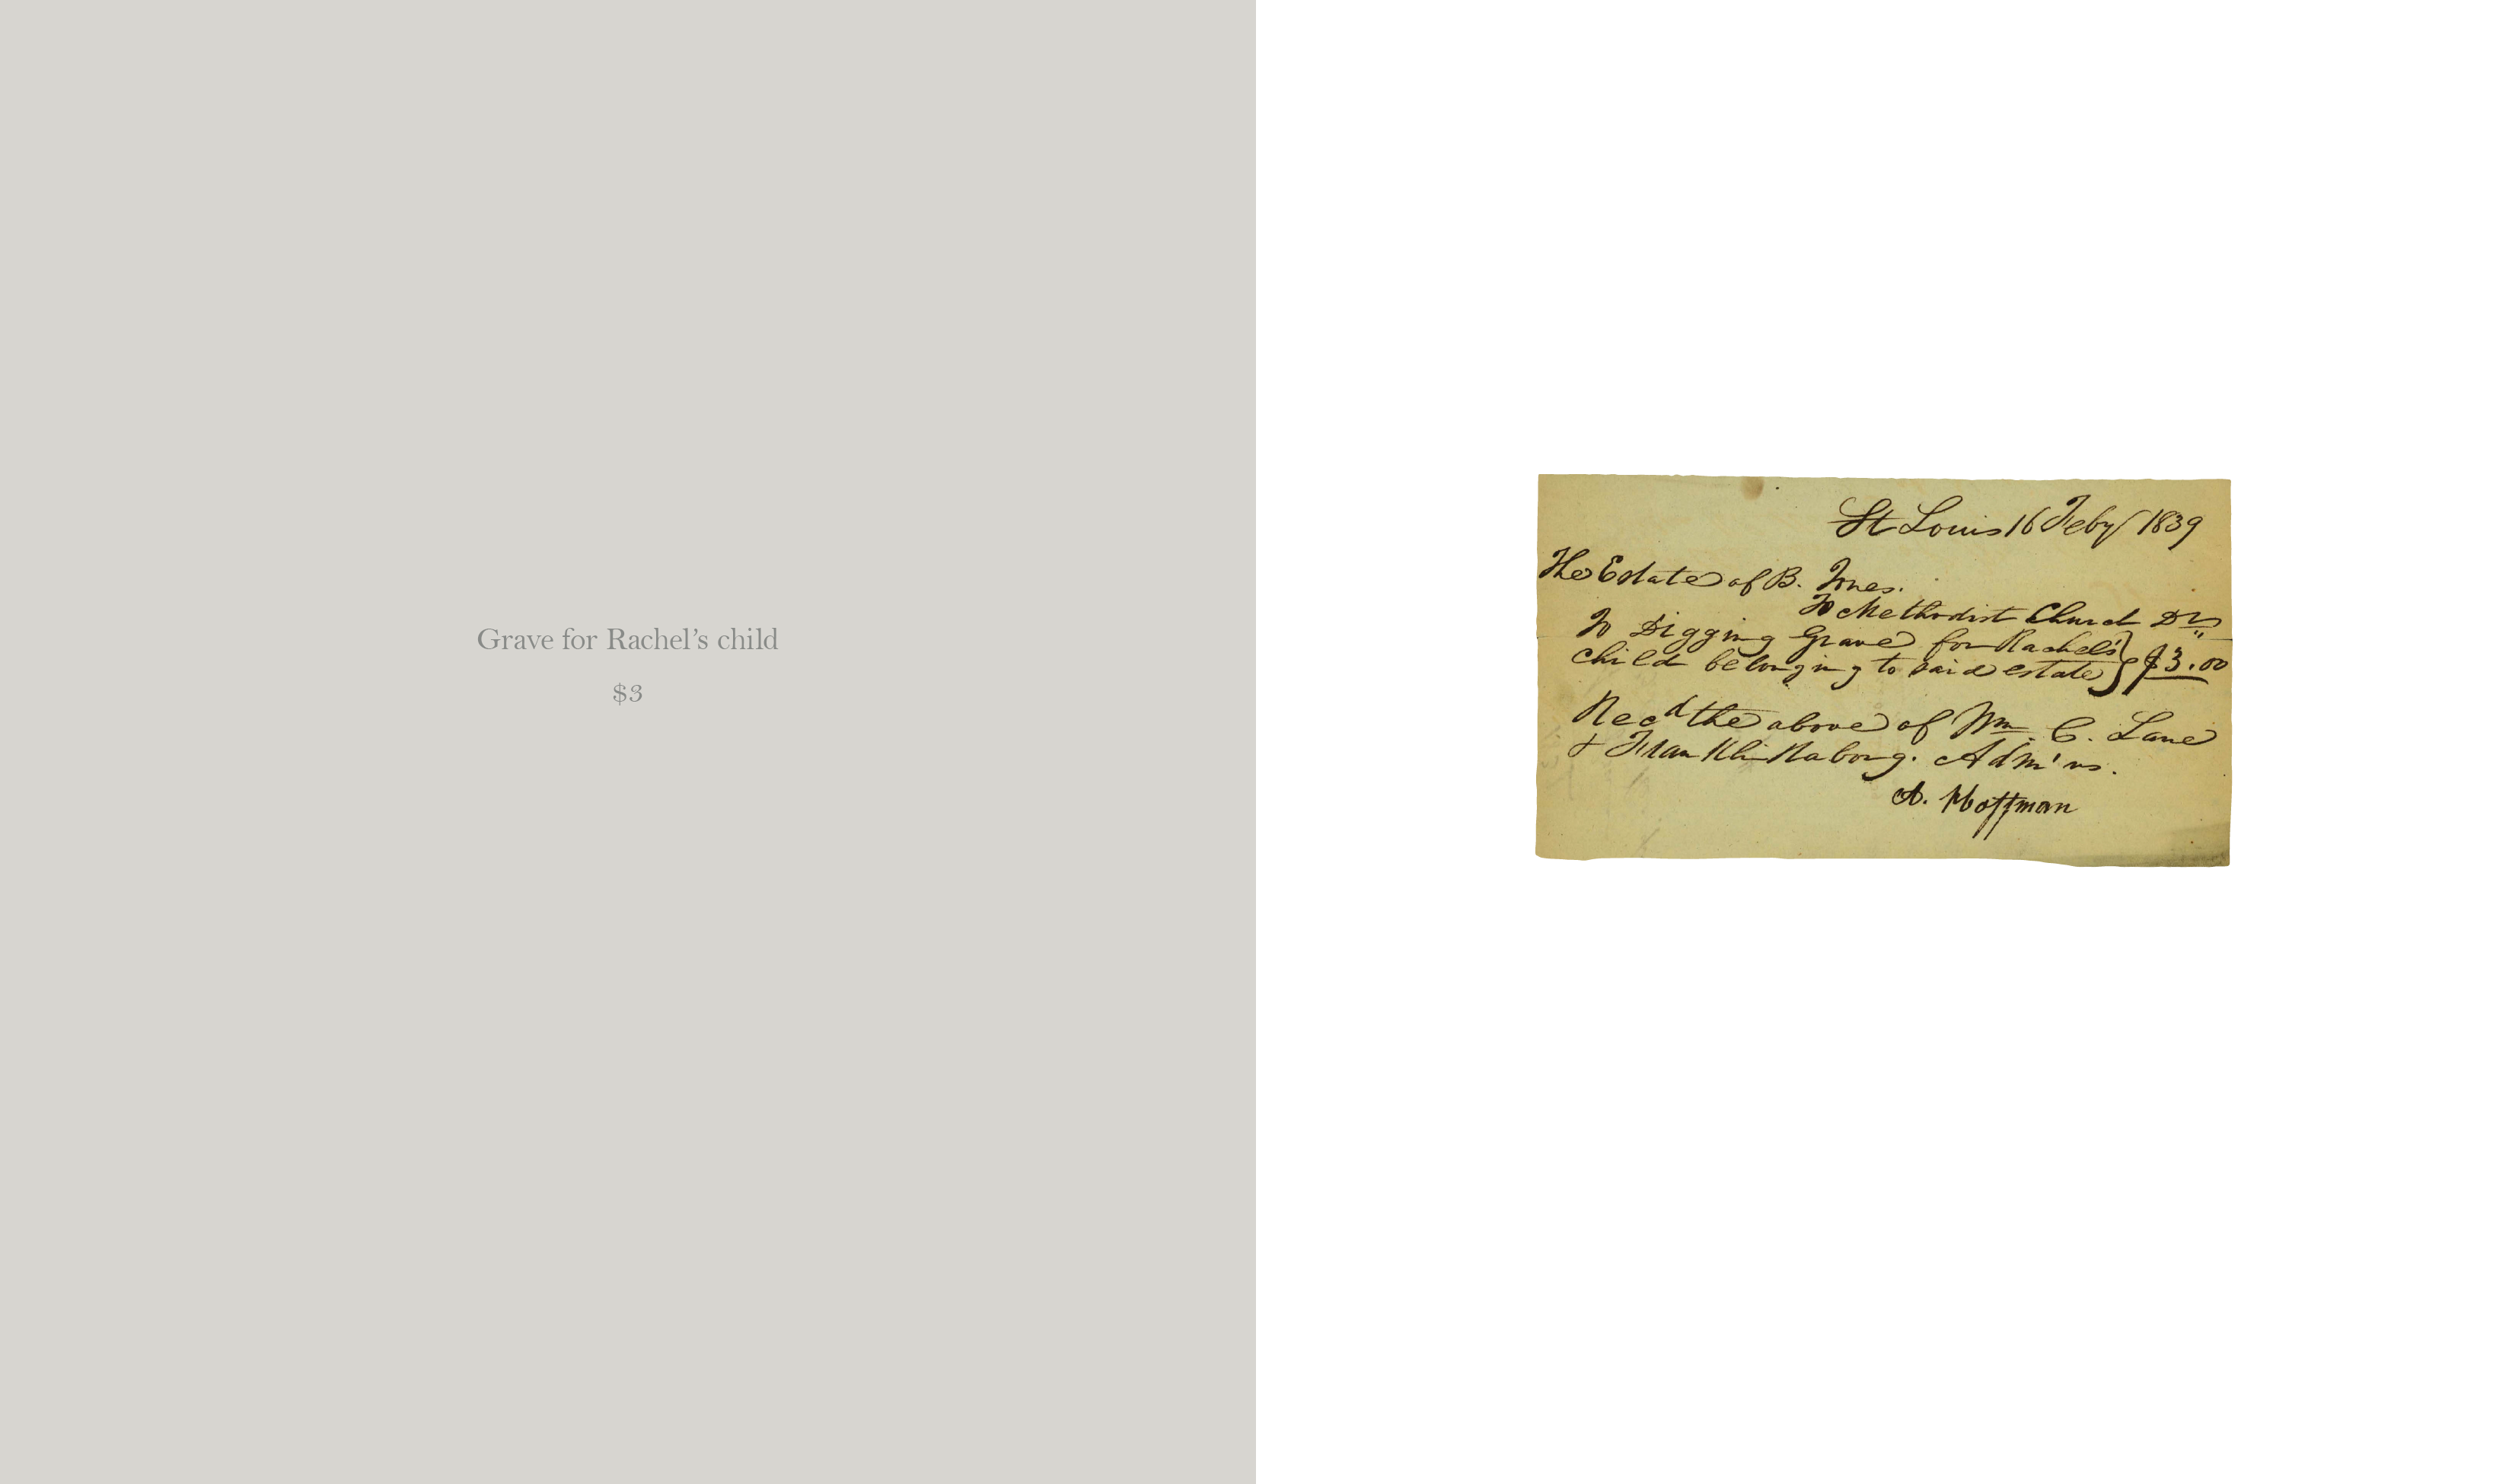 Grave for Rachel’s child
$3
St Louis 16 Feby 1839
The Estate of B. Jones.
To Methodist Church Dr
To Digging Grave for Rachel's
child belonging to said estate } $3.00
Recd the above of Wm. C. Lane
& Franklin Raborg. Adm'rs.
A. Hoffman